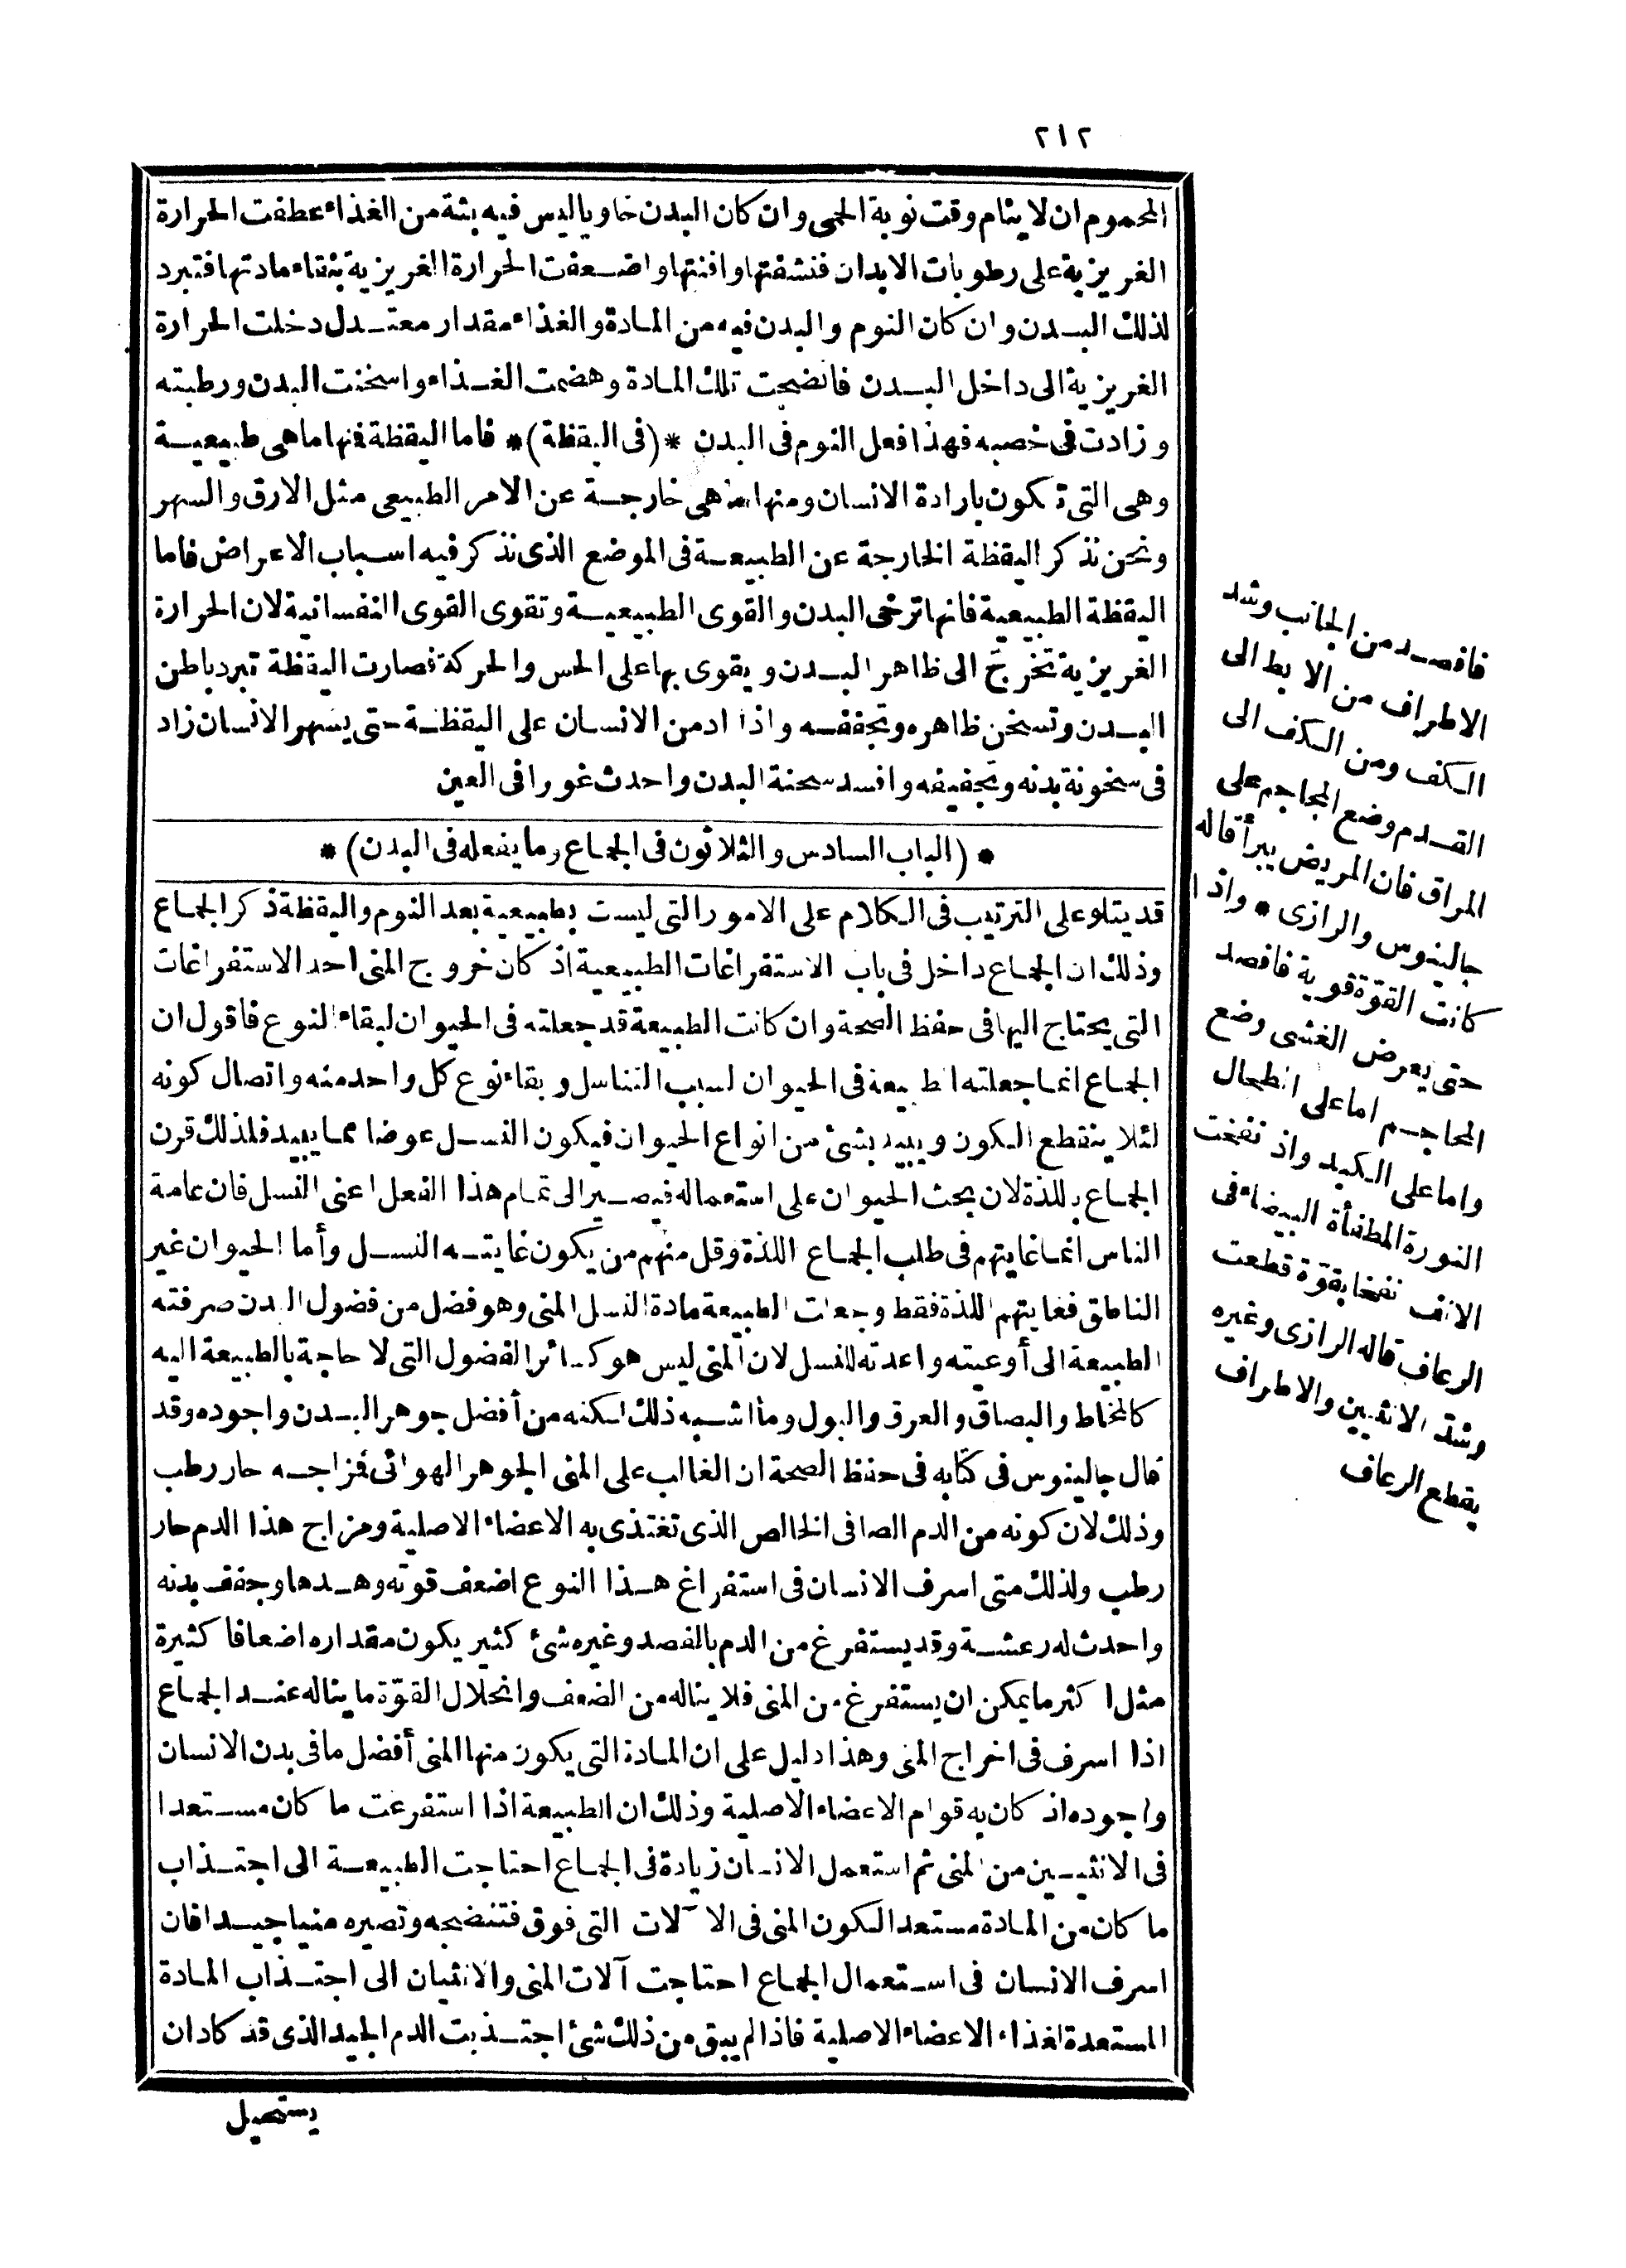 ٢١٢
المحموم ان لا ينام وقت نوبة الحمى وان كان البدن خاويا ليس فيه بتة من الغذاء عطفت الحرارة
الغريزية على رطوبات الابدان فنشفتها وافنتها واضعفت الحرارة الغريزية بفناء مادتها فتبرد
لذلك البدن وان كان النوم والبدن فيه من المادة والغذاء مقدار معتدل دخلت الحرارة
الغريزية الى داخل البدن فانضجت تلك المادة وهضمت الغذاء واسخنت البدن ورطبته
وزادت فى خصبه فهذا فعل النوم فى البدن * (فى اليقظة) * فاما اليقظة فنها ما هى طبيعية
وهى التى تكون بارادة الانسان ومنها ما هى خارجة عن الامر الطبيعى مثل الارق والسهر
ونحن نذكر اليقظة الخارجة عن الطبيعة فى الموضع الذى نذكر فيه اسباب الاعراض فاما
اليقظة الطبيعية فانها ترخى البدن والقوى الطبيعية وتقوى القوى النفسانية لان الحرارة
الغريزية تخرج الى ظاهر البدن ويقوى بها على الحس والحركة فصارت اليقظة تبرد باطن
البدن وتسخن ظاهره وتجففه واذا ادمن الانسان على اليقظة حتى يسهر الانسان زاد
فى سخونة بدنه وتجفيفه وافسد سحنة البدن واحدث غورا فى العين
* (الباب السادس والثلاثون فى الجماع وما يفعله فى البدن) *
قد يتلو على الترتيب فى الكلام على الامور التى ليست بطبيعية بعد النوم واليقظة ذكر الجماع
وذلك ان الجماع داخل فى باب الاستفراغات الطبيعية اذ كان خروج المنى احد الاستفراغات
التى يحتاج اليها فى حفظ الصحة وان كانت الطبيعة قد جعلته فى الحيوان لبقاء النوع فاقول ان
الجماع انما جعلته الطبيعة فى الحيوان لسبب التناسل وبقاء نوع كل واحد منه واتصال كونه
لئلا ينقطع الكون ويبيد بشئ من انواع الحيوان فيكون النسل عوضا مما يبيد فلذلك قرن
الجماع باللذة لان يحث الحيوان على استعماله فيصير الى تمام هذا الفعل اعنى النسل فان عامة
الناس انما غايتهم فى طلب الجماع اللذة وقل منهم من يكون غايته النسل وأما الحيوان غير
الناطق فغايتهم اللذة فقط وجعلت الطبيعة مادة النسل المنى وهو فضل من فضول البدن صرفته
الطبيعة الى أوعيته واعدته للنسل لان المنى ليس هو كسائر الفضول التى لا حاجة بالطبيعة اليه
كالمخاط والبصاق والعرق والبول وما اشبه ذلك لكنه من أفضل جوهر البدن واجوده وقد
قال جالينوس فى كتابه فى حفظ الصحة ان الغالب على المنى الجوهر الهوائى فمزاجه حار رطب
وذلك لان كونه من الدم الصافى الخالص الذى تغتذى به الاعضاء الاصلية ومزاج هذا الدم حار
رطب ولذلك متى اسرف الانسان فى استفراغ هذا النوع اضعف قوته وهدها وجفف بدنه
واحدث له رعشة وقد يستفرغ من الدم بالفصد وغيره شئ كثير يكون مقداره اضعافا كثيرة
مثل اكثر ما يمكن ان يستفرغ من المنى فلا يناله من الضعف وانحلال القوّة ما يناله عند الجماع
اذا اسرف فى اخراج المنى وهذا دليل على ان المادة التى يكون منها المنى أفضل ما فى بدن الانسان
واجوده اذ كان به قوام الاعضاء الاصلية وذلك ان الطبيعة اذا استفرغت ما كان مستعدا
فى الانثيين من المنى ثم استعمل الانسان زيادة فى الجماع احتاجت الطبيعة الى اجتذاب
ما كان من المادة مستعدا لكون المنى فى الآلات التى فوق فتنضجه وتصيره منيا جيدا فان
اسرف الانسان فى استعمال الجماع احتاجت آلات المنى والانثيان الى اجتذاب المادة
المستعدة لغذاء الاعضاء الاصلية فاذا لم يبق من ذلك شئ اجتذبت الدم الجيد الذى قد كاد ان
يستحيل
فافصد من الجانب وشد
الاطراف من الابط الى
الكف ومن الكف الى
القدم وضع المحاجم على
المراق فان المريض يبرأ قاله
جالينوس والرازى * واذا
كانت القوّة قوية فافصد
حتى يعرض الغشى وضع
المحاجم اما على الطحال
واما على الكبد واذ نفخت
النورة المطفأة البيضاء فى
الانف نفخا بقوّة قطعت
الرعاف قاله الرازى وغيره
وشدّ الانثيين والاطراف
يقطع الرعاف